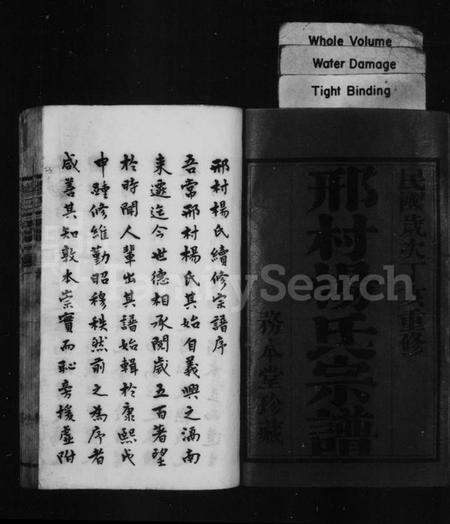 Whole Volume
Water Damage
Tight Binding
民國歲次丁亥重修
邢村楊氏宗譜
務本堂珍藏
邢村楊氏續修宗譜序
吾常邢村楊氏其始自義興之滆南
來遷迄今世德相承閱歲五百耆望
於時聞人輩出其譜始輯於康熙戊
申踵修維勤昭穆秩然前之為序者
咸善其知敦本崇實而恥旁援虛附
FamilySearch